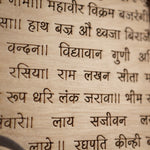 नामा॥ महावीर विक्रम बजरंगी
हाथ बज्र औ ध्वजा बिराजै
वन्दन॥ विद्यावान गुणी अ
रसिया। राम लखन सीता म
रूप धरि लंक जरावा॥ भीम
संवारे॥ लाय सजीवन ल
लाये॥ रघुपति कीन्ही